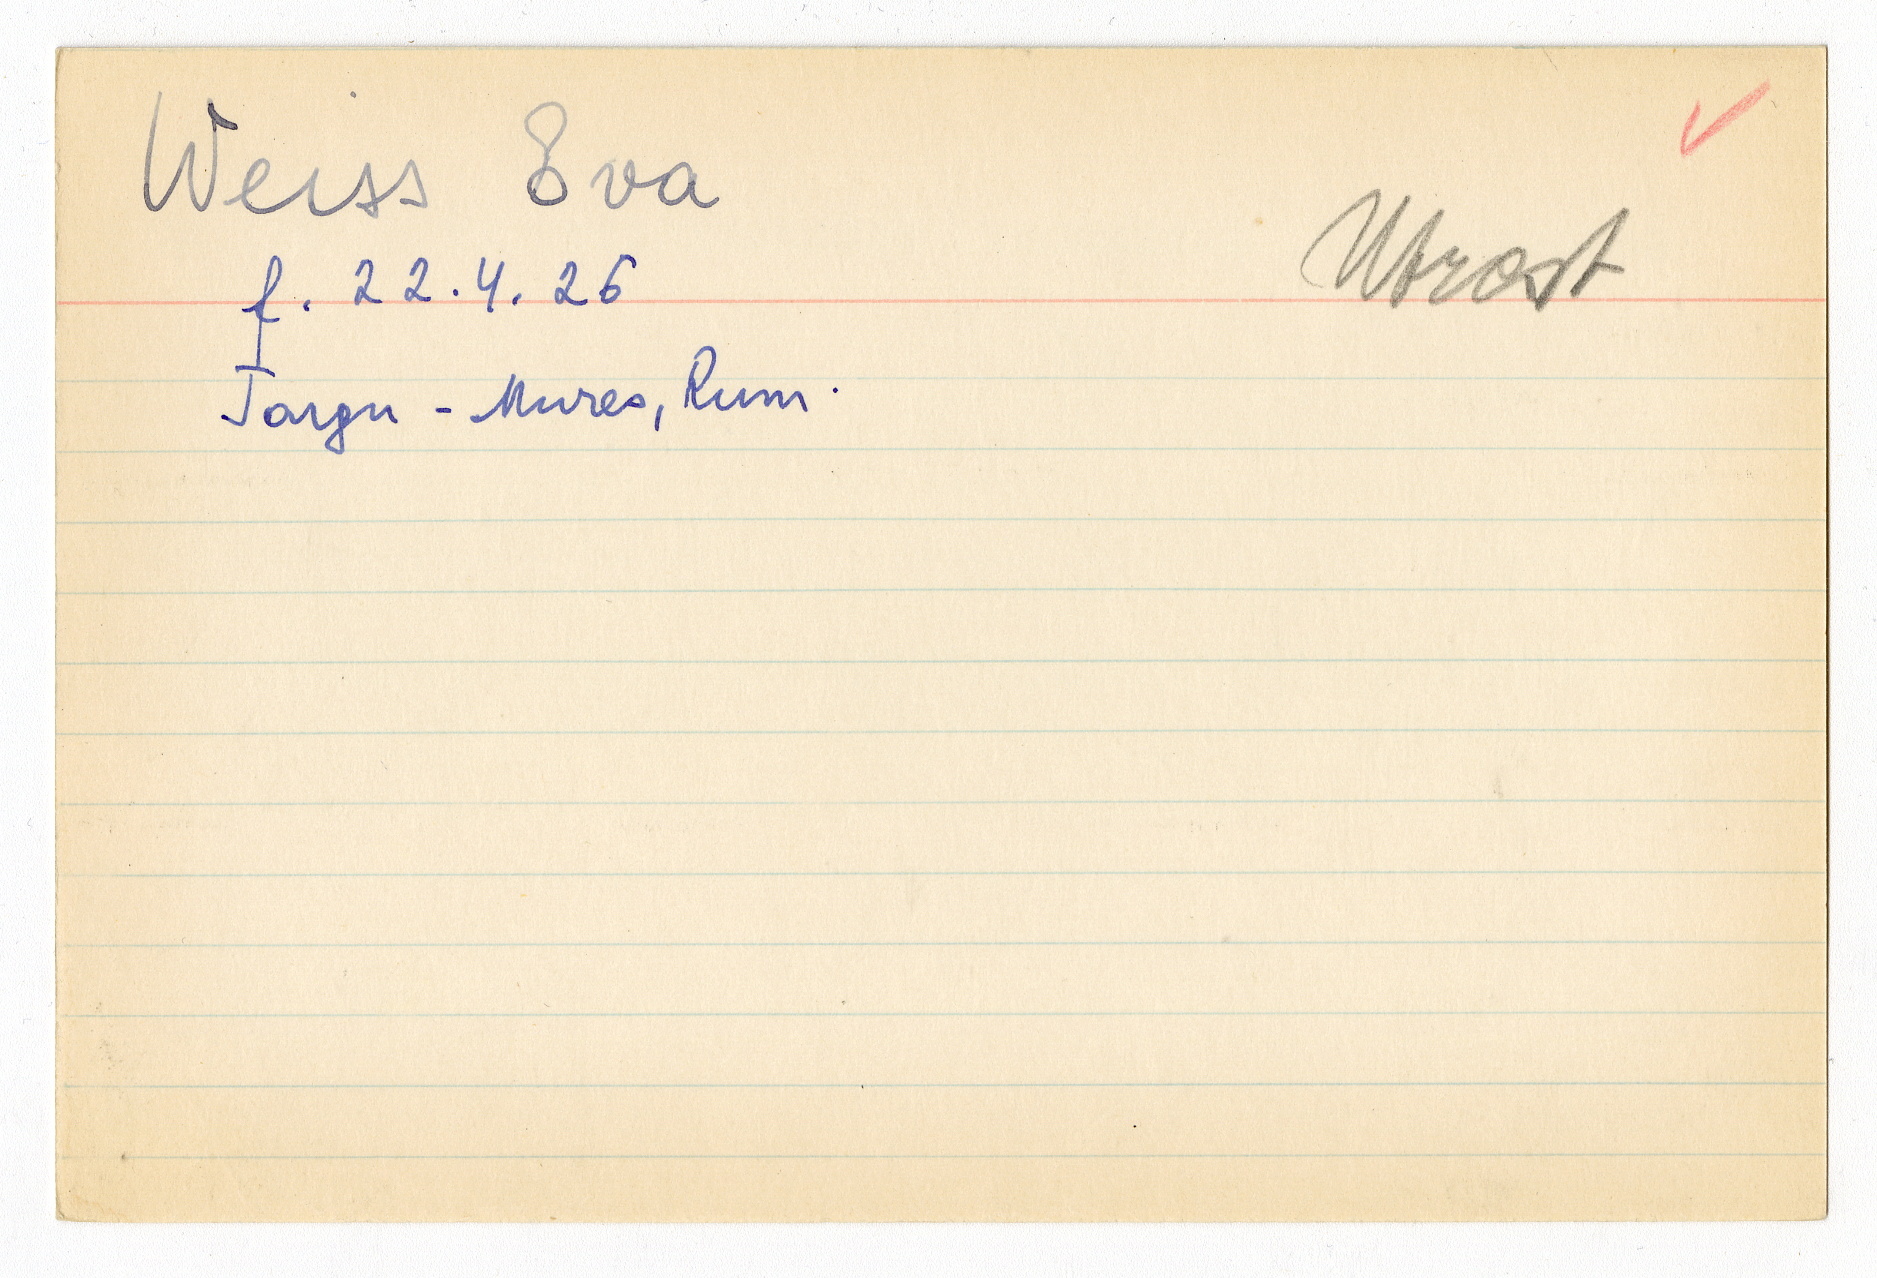 Weiss Eva
Utrest
f. 22.4.26
Targu - Mures, Rum.